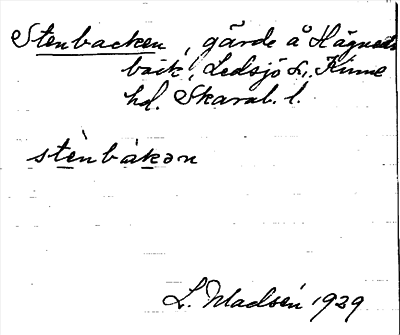 Stenbacken, gärde å Hägnets
bäck, Ledsjö s., Kinne
hd. Skarab. l.
stènbàkən
L. Madsén 1929